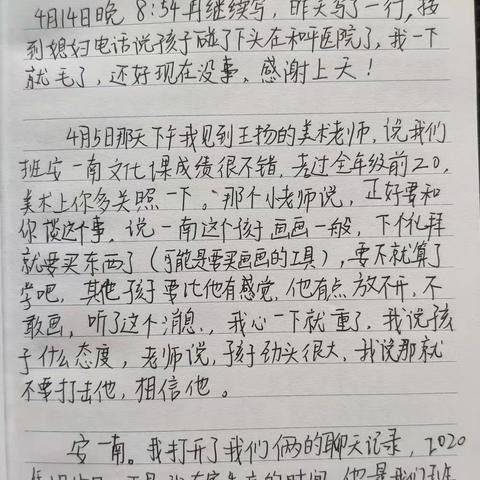 4月14日晚 8:54再继续写，昨天写了一行，接
到媳妇电话说孩子碰了下头在和平医院了，我一下
就毛了，还好现在没事，感谢上天！
4月5日那天下午我见到王扬的美术老师，说我们
班安一南文化课成绩很不错，考过全年级前20，
美术上你多关照一下。那个小老师说，正好要和
你谈这个事，说一南这个孩子画画一般，下个礼拜
就要买东西了（可能是要买画画的工具），要不就算了
学吧，其他孩子要比他有感觉，他有点放不开，不
敢画，听了这个消息，我心一下就重了，我说孩
子什么态度，老师说，孩子劲头很大，我说那就
不要打击他，相信他。
安一南。我打开了我们俩的聊天记录，2020